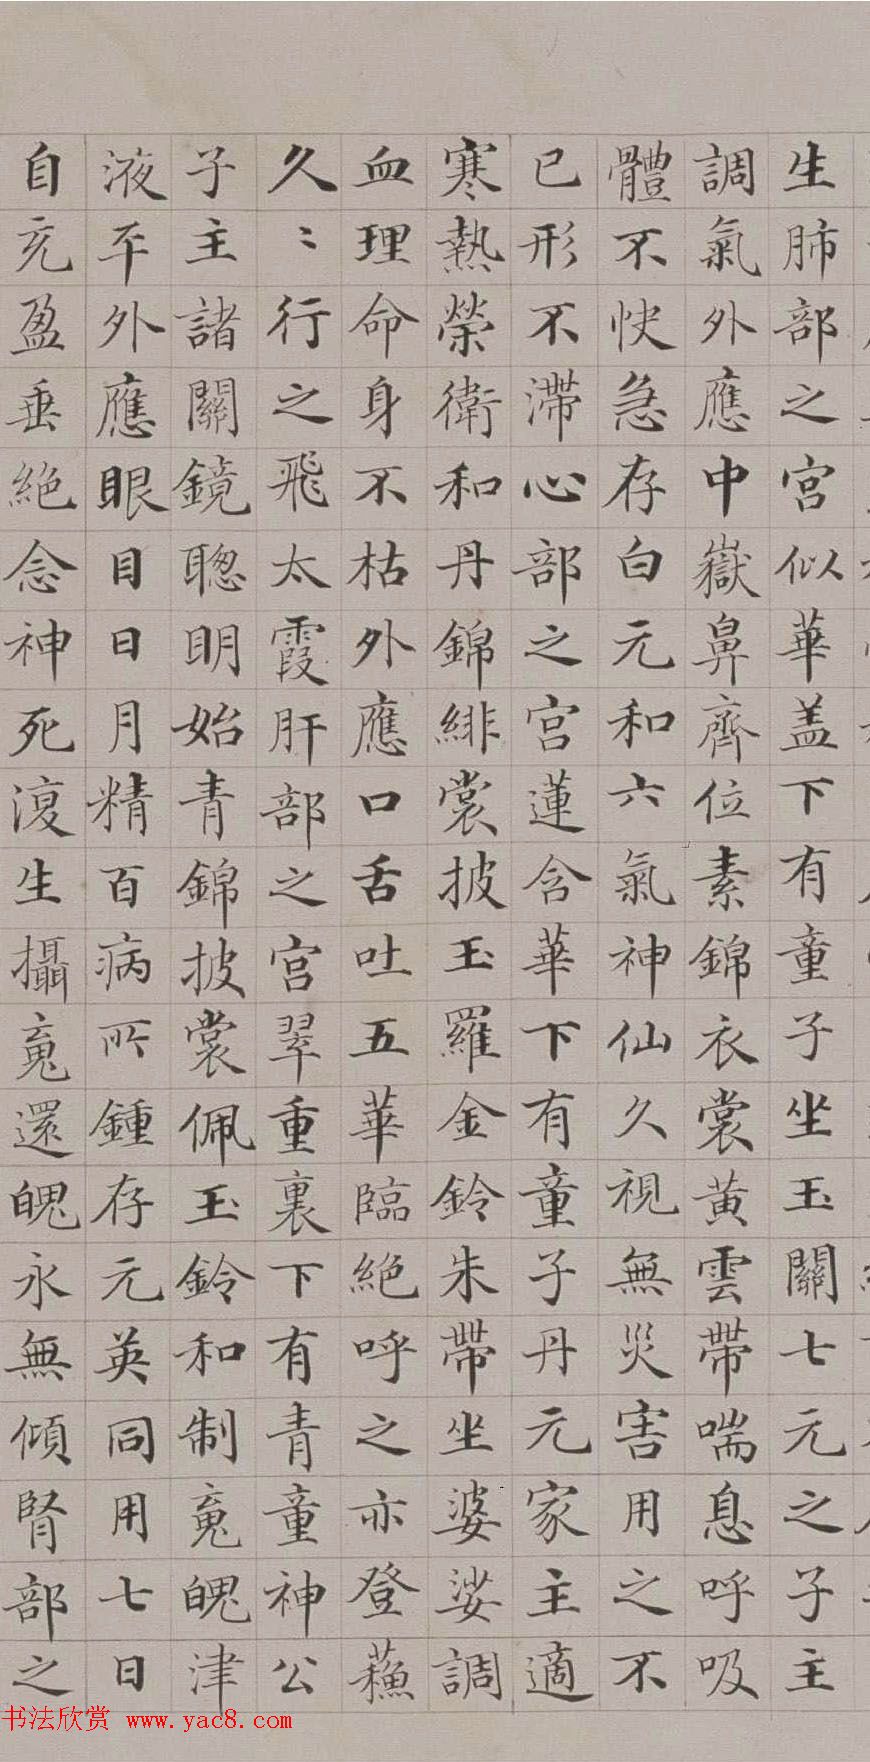 生肺部之宮似華盖下有童子坐玉關七元之子主
調氣外應中嶽鼻齊位素錦衣裳黃雲帶喘息呼吸
體不快急存白元和六氣神仙久視無災害用之不
已形不滯心部之宮蓮含華下有童子丹元家主適
寒熱榮衛和丹錦緋裳披玉羅金鈴朱帶坐婆娑調
血理命身不枯外應口舌吐五華臨絕呼之亦登蘓
久〻行之飛太霞肝部之宮翠重裏下有青童神公
子主諸關鏡聰明始青錦披裳佩玉鈴和制䰟魄津
液平外應眼目日月精百病所鍾存元英同用七日
自充盈垂絕念神死復生攝䰟還魄永無傾腎部之
书法欣赏 www.yac8.com